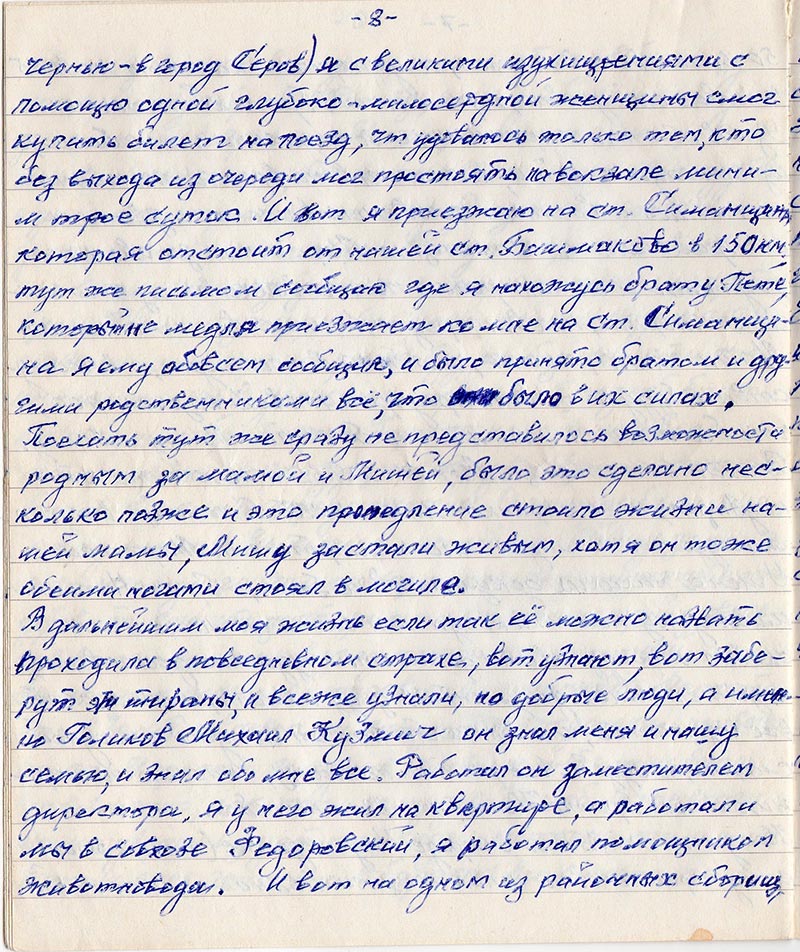 -8-
чернью - в город Серов) я с великими изухищрениями с
помощю одной глубоко-милосердной женщины смог
купить билет на поезд, что удавалось только тем, кто
без выхода из очереди мог простоять на вокзале мини-
м трое суток. И вот я приезжаю на ст. Симанщина,
которая отстоит от нашей ст. Башмаково в 150 км.
тут же письмом сообщаю где я нахожусь брату Пете,
который не медля приезжает ко мне на ст. Симанщи-
на я ему обо всем сообщил, и было принято братом и дру-
гими родственниками всё, что было в их силах.
Поехать тут же сразу не представилось возможности
родным за мамой и Мишей, было это сделано нес-
колько позже и это промедление стоило жизни на-
шей мамы, Мишу застали живым, хотя он тоже
обеими ногами стоял в могиле.
В дальнейшим моя жизнь если так её можно назвать
проходила в повседневном страхе, вот узнают, вот забе-
рут эти тираны, и все же узнали, но добрые люди, а имен-
но Голиков Михаил Кузмич он знал меня и нашу
семью, и знал обо мне все. Работал он заместителем
директора, я у него жил на квартире, а работали
мы в совхозе Федоровский, я работал помощником
животновода. И вот на одном из районных сборищ,